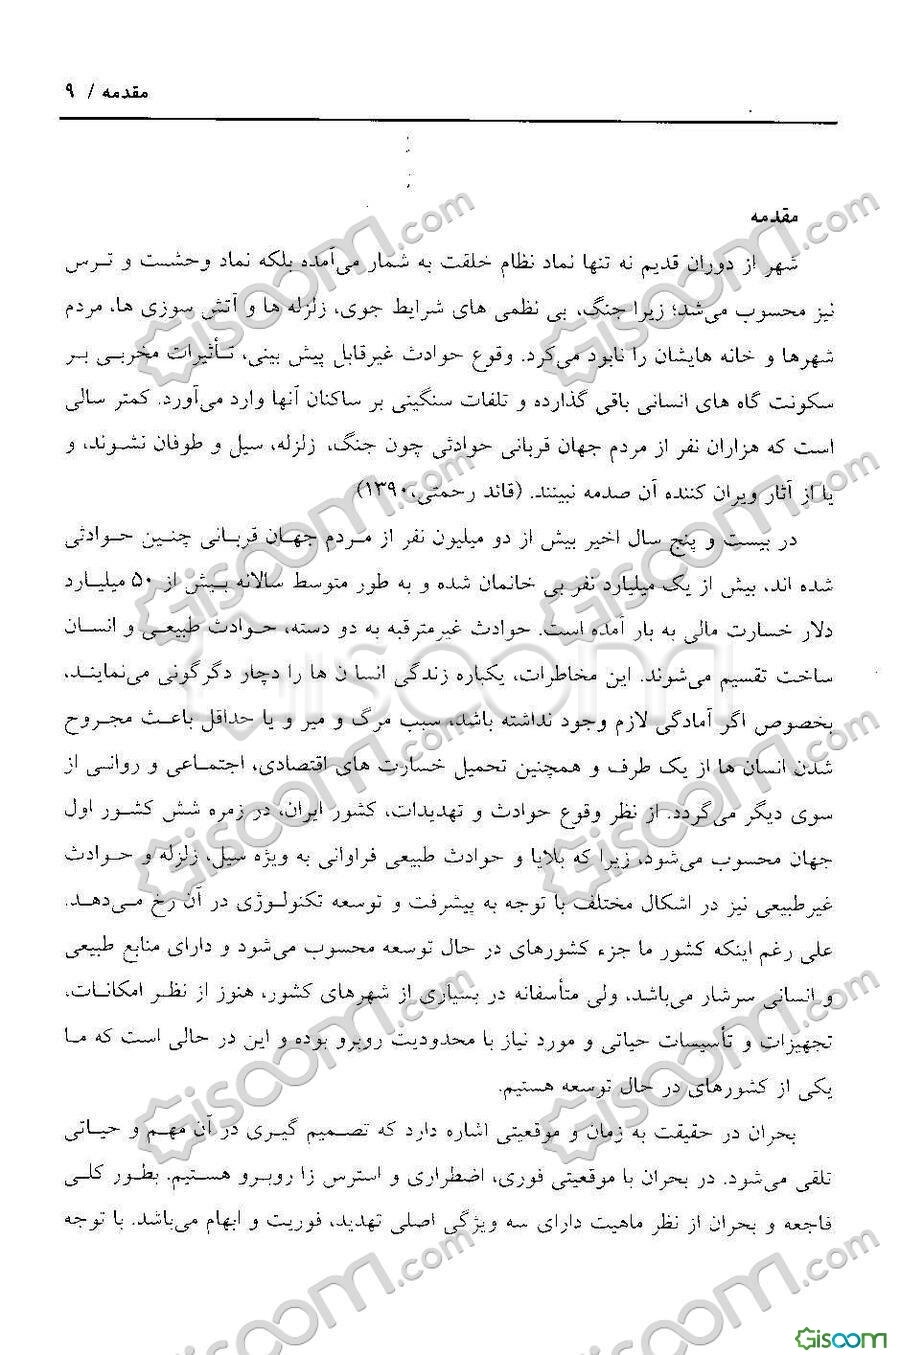 مقدمه / ۹
مقدمه
شهر از دوران قدیم نه تنها نماد نظام خلقت به شمار می‌آمده بلکه نماد وحشت و ترس
نیز محسوب می‌شد؛ زیرا جنگ، بی نظمی های شرایط جوی، زلزله ها و آتش سوزی ها، مردم
شهرها و خانه هایشان را نابود می‌کرد. وقوع حوادث غیرقابل پیش بینی، تأثیرات مخربی بر
سکونت گاه های انسانی باقی گذارده و تلفات سنگینی بر ساکنان آنها وارد می‌آورد. کمتر سالی
است که هزاران نفر از مردم جهان قربانی حوادثی چون جنگ، زلزله، سیل و طوفان نشوند، و
یا از آثار ویران کننده آن صدمه نبینند. (قائد رحمتی،۱۳۹۰)
در بیست و پنج سال اخیر بیش از دو میلیون نفر از مردم جهان قربانی چنین حوادثی
شده اند، بیش از یک میلیارد نفر بی خانمان شده و به طور متوسط سالانه بیش از ۵۰ میلیارد
دلار خسارت مالی به بار آمده است. حوادث غیرمترقبه به دو دسته، حوادث طبیعی و انسان
ساخت تقسیم می‌شوند. این مخاطرات، یکباره زندگی انسا ن ها را دچار دگرگونی می‌نمایند،
بخصوص اگر آمادگی لازم وجود نداشته باشد، سبب مرگ و میر و یا حداقل باعث مجروح
شدن انسان ها از یک طرف و همچنین تحمیل خسارت های اقتصادی، اجتماعی و روانی از
سوی دیگر می‌گردد. از نظر وقوع حوادث و تهدیدات، کشور ایران، در زمره شش کشور اول
جهان محسوب می‌شود، زیرا که بلایا و حوادث طبیعی فراوانی به ویژه سیل، زلزله و حوادث
غیرطبیعی نیز در اشکال مختلف با توجه به پیشرفت و توسعه تکنولوژی در آن رخ می‌دهد.
علی رغم اینکه کشور ما جزء کشورهای در حال توسعه محسوب می‌شود و دارای منابع طبیعی
و انسانی سرشار می‌باشد، ولی متأسفانه در بسیاری از شهرهای کشور، هنوز از نظر امکانات،
تجهیزات و تأسیسات حیاتی و مورد نیاز با محدودیت روبرو بوده و این در حالی است که ما
یکی از کشورهای در حال توسعه هستیم.
بحران در حقیقت به زمان و موقعیتی اشاره دارد که تصمیم گیری در آن مهم و حیاتی
تلقی می‌شود. در بحران با موقعیتی فوری، اضطراری و استرس زا روبرو هستیم. بطور کلی
فاجعه و بحران از نظر ماهیت دارای سه ویژگی اصلی تهدید، فوریت و ابهام می‌باشد. با توجه
Gisoom